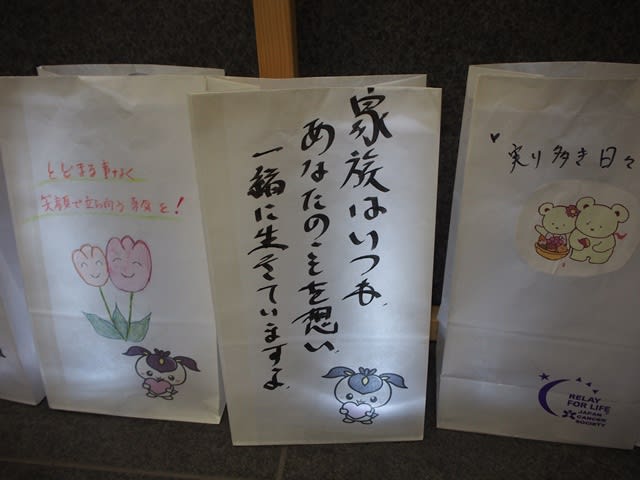 とどまる事なく
笑顔で立ち向う勇気を!
家族はいつも、
あなたのことを想い、
一緒に生きていますよ。
実り多き日々
RELAY
FOR LIFE
JAPAN
CANCER
SOCIETY